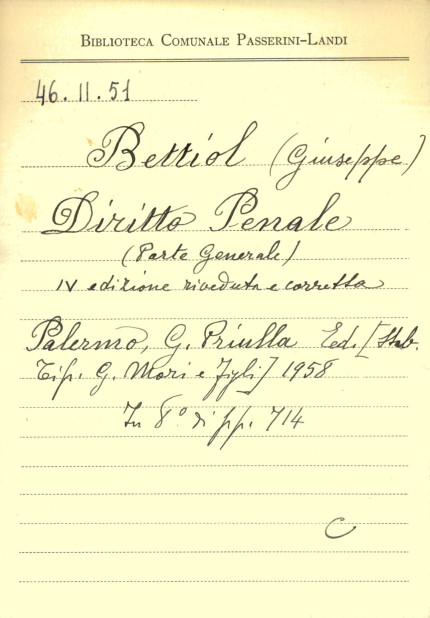 BIBLIOTECA COMUNALE PASSERINI-LANDI
46. II. 51
Bettiol (Giuseppe)
Diritto Penale
(Parte Generale)
IV edizione riveduta e corretta
Palermo, G. Priulla Ed. [Stab.
Tip. G. Mori e Figli] 1958
In 8° di pp. 714
C